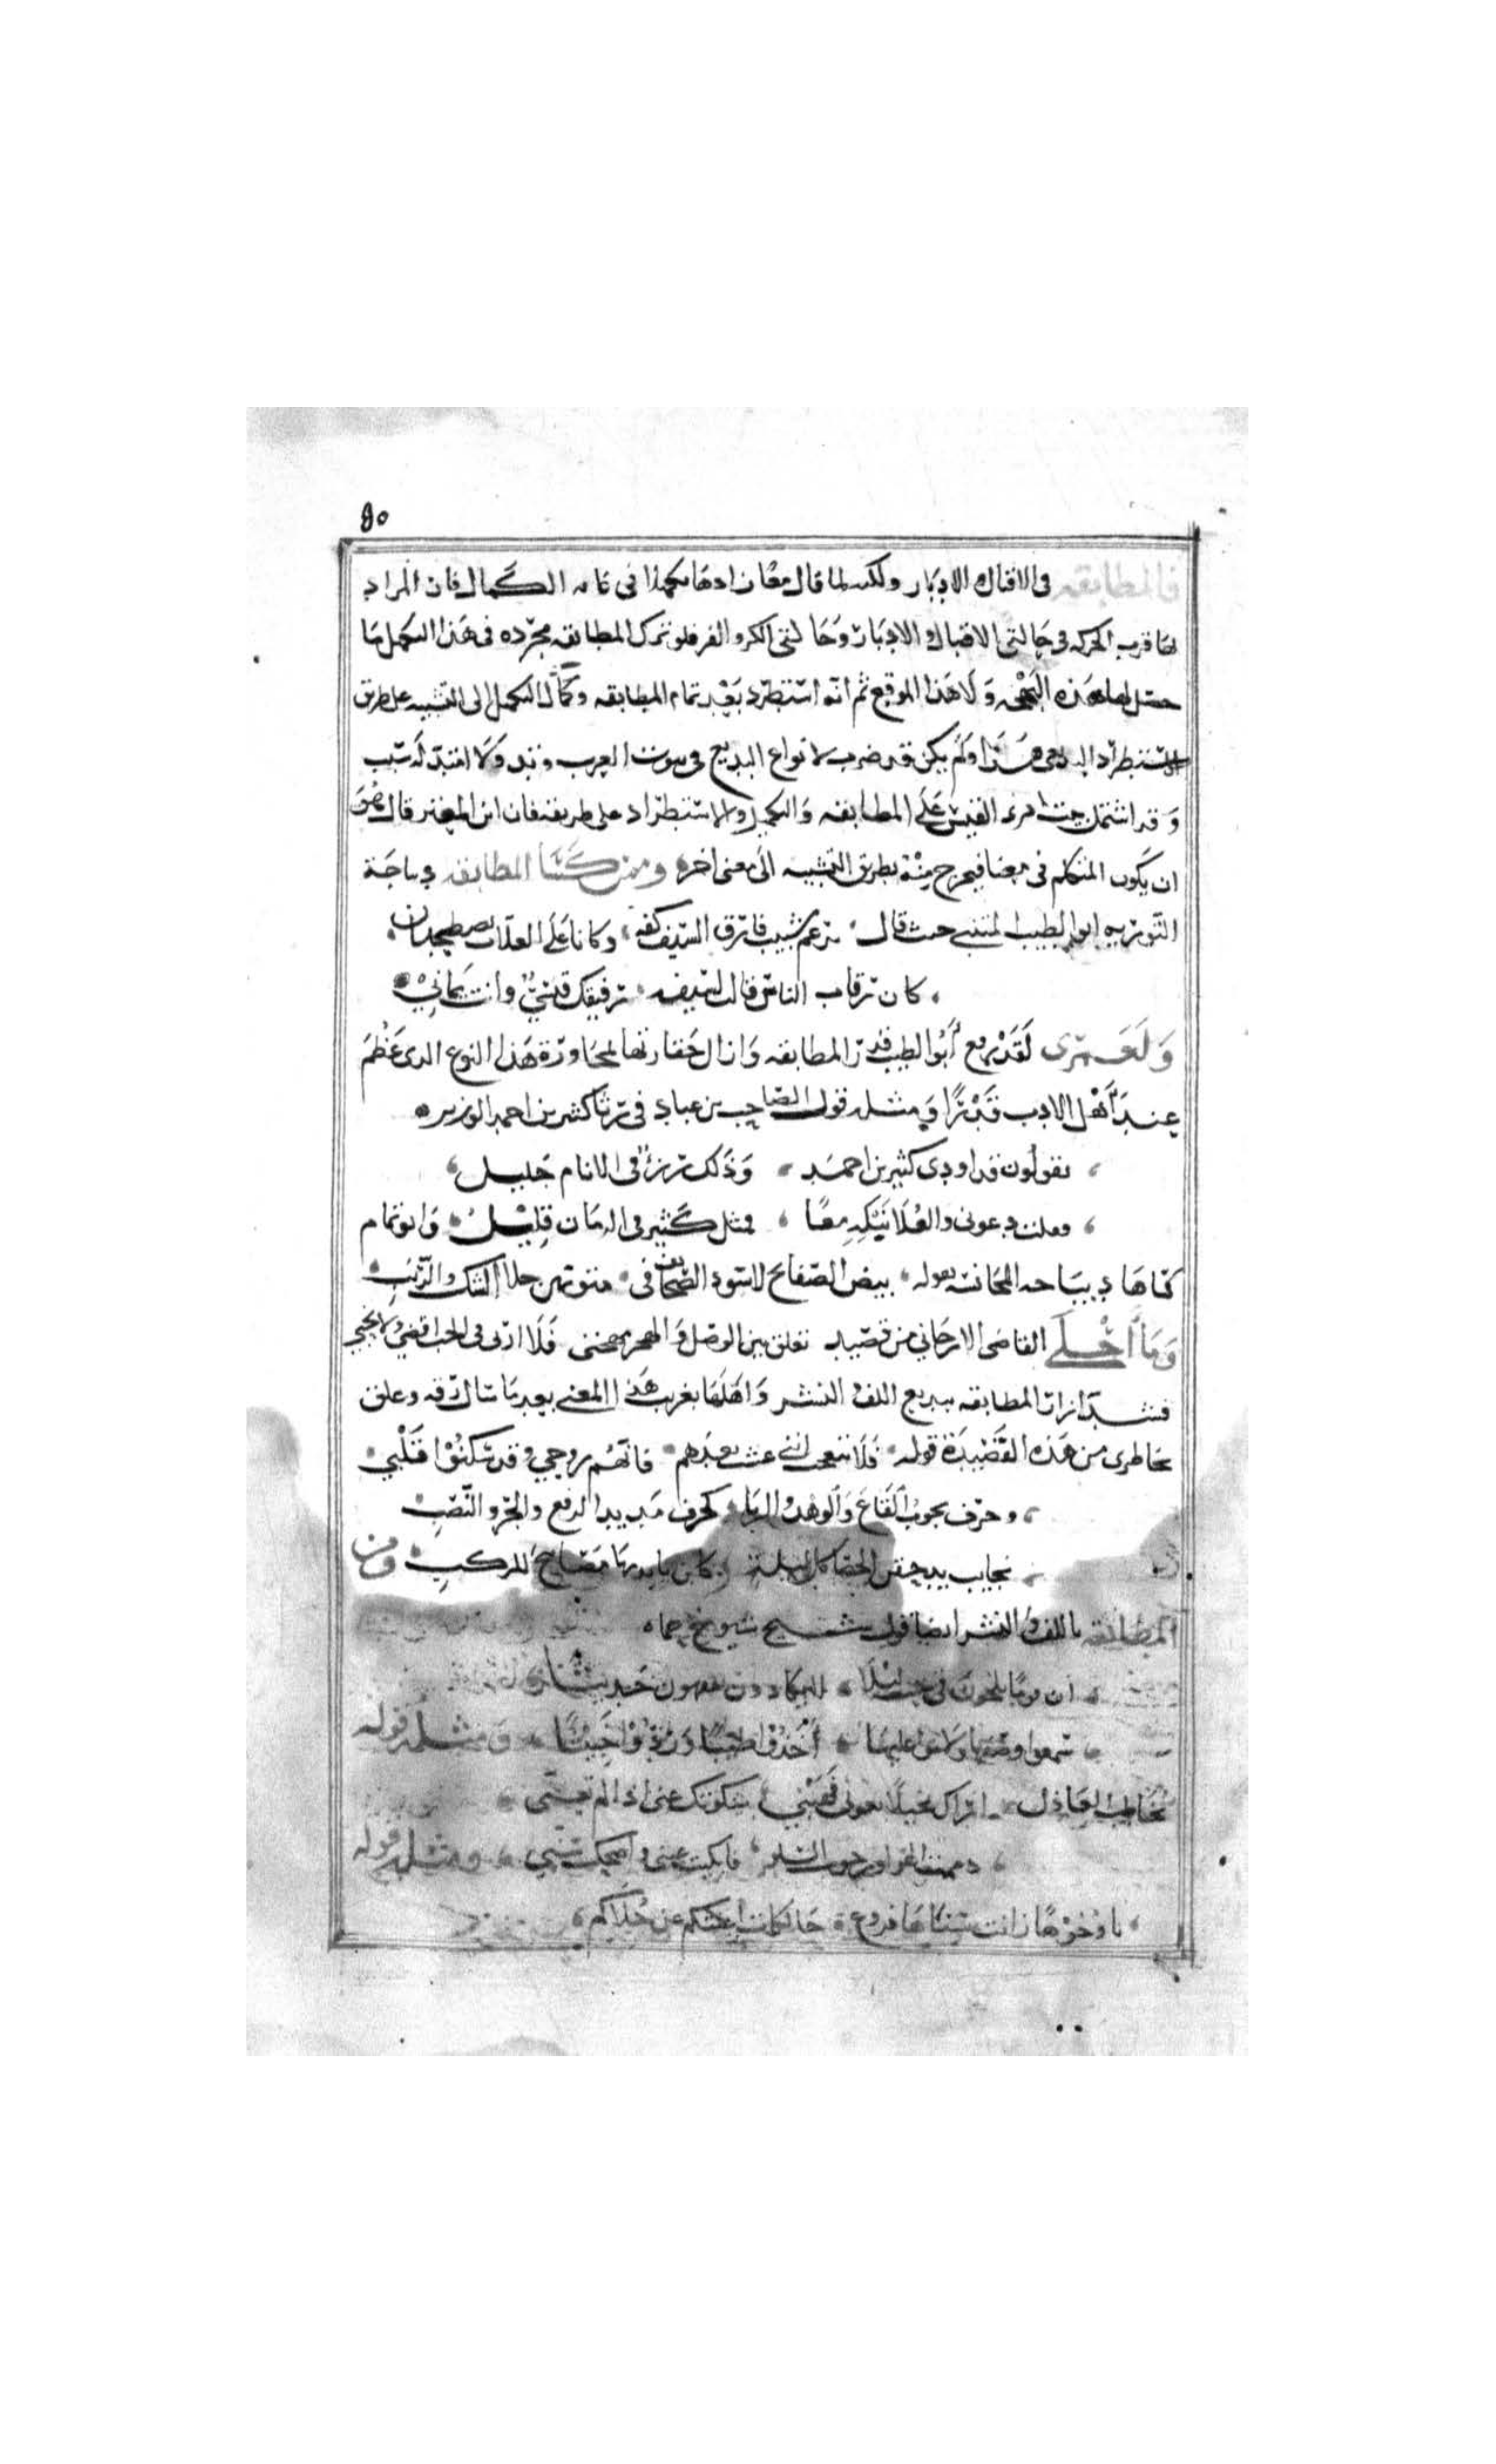 ٥٠
فالمطابقه فى الاقبال والادبار ولكنه لما قال معًا زادها تكميلا فى غايه الكمال فان المراد
بها قرب الحركه فى حالتى الاقبال والادبار وحالتى الكر والفر فلو ترك المطابقه مجرده من هذا التكميل ما
حصل لها هذه البهجه ولا هذا الموقع ثم انه استطرد بعد تمام المطابقه وكمال التكميل الى التشبيه على طريق
الاستطراد البديعى هذا ولم يكن قد ضرب لانواع البديع فى بيوت العرب وتد ولا امتد له سبب
وقد اشتمل بيت امرء القيس على المطابقه والتكميل والاستطراد على طريقه فان ابن المعتز قال هو
ان يكون المتكلم فى معنا فيخرج منه بطريق التشبيه الى معنى اخر وممن كسا المطابقه ديباجة
التوريه ابو الطيب المتنبى حيث قال برغم شبيب فارق السيف كفه وكانا على العلات يصطحبان
كان رقاب الناس قالت لسيفه رفيقك قيسى وانت يمانى
ولعمرى لقد رفع ابو الطيب قدر المطابقه وازال حقارتها بمجاورة هذا النوع الذى عظم
عند اهل الادب قدرًا ومثله قول الصاحب بن عباد فى رثا كثير بن احمد الوزير
يقولون قد اودى كثير بن احمد وذلك رزء فى الانام جليل
فقلت دعونى والعلا نبكه معًا فمثل كثير فى الزمان قليل وابو تمام
كساها ديباجه المجانسه بقوله بيض الصفائح لا سود الصحائف فى متونهن جلا الشك والريب
وما احلى القاضى الارجانى من قصيد تعلق بين الوصل والهجر مهجتى فلا اربى فى الحب اقضى ولا نحبى
فشد ازار المطابقه ببديع اللف والنشر واهلها بغريب هذا المعنى بعد ما سال رقه وعلق
بخاطرى من هذه القصيدة قوله فلا تعجب اننى عشت بعدهم فانهم روحى وقد سكنوا قلبى
وحرف يجوب القاع والوهد والربا كحرف مديد الرفع والجر والنصب
نجايب يقدحن الحصا كل ليلة كان بايديها مصابيح للركب ومن
المطابقه باللف والنشر ايضا قول شيخ شيوخ حماه
ان قومًا يلحون فى حب ليلا لا يكادون يفقهون حديثا
سمعوا وصفها ولاموا عليها اخذوا طيبًا وردوا خبيثًا ومثله قوله
يخاطب العاذل اراك بخيلا بعونى فهبنى سكوتك عنى اذا لم تعنى
فابكيت عينى واضحكت سنى ومثله قوله